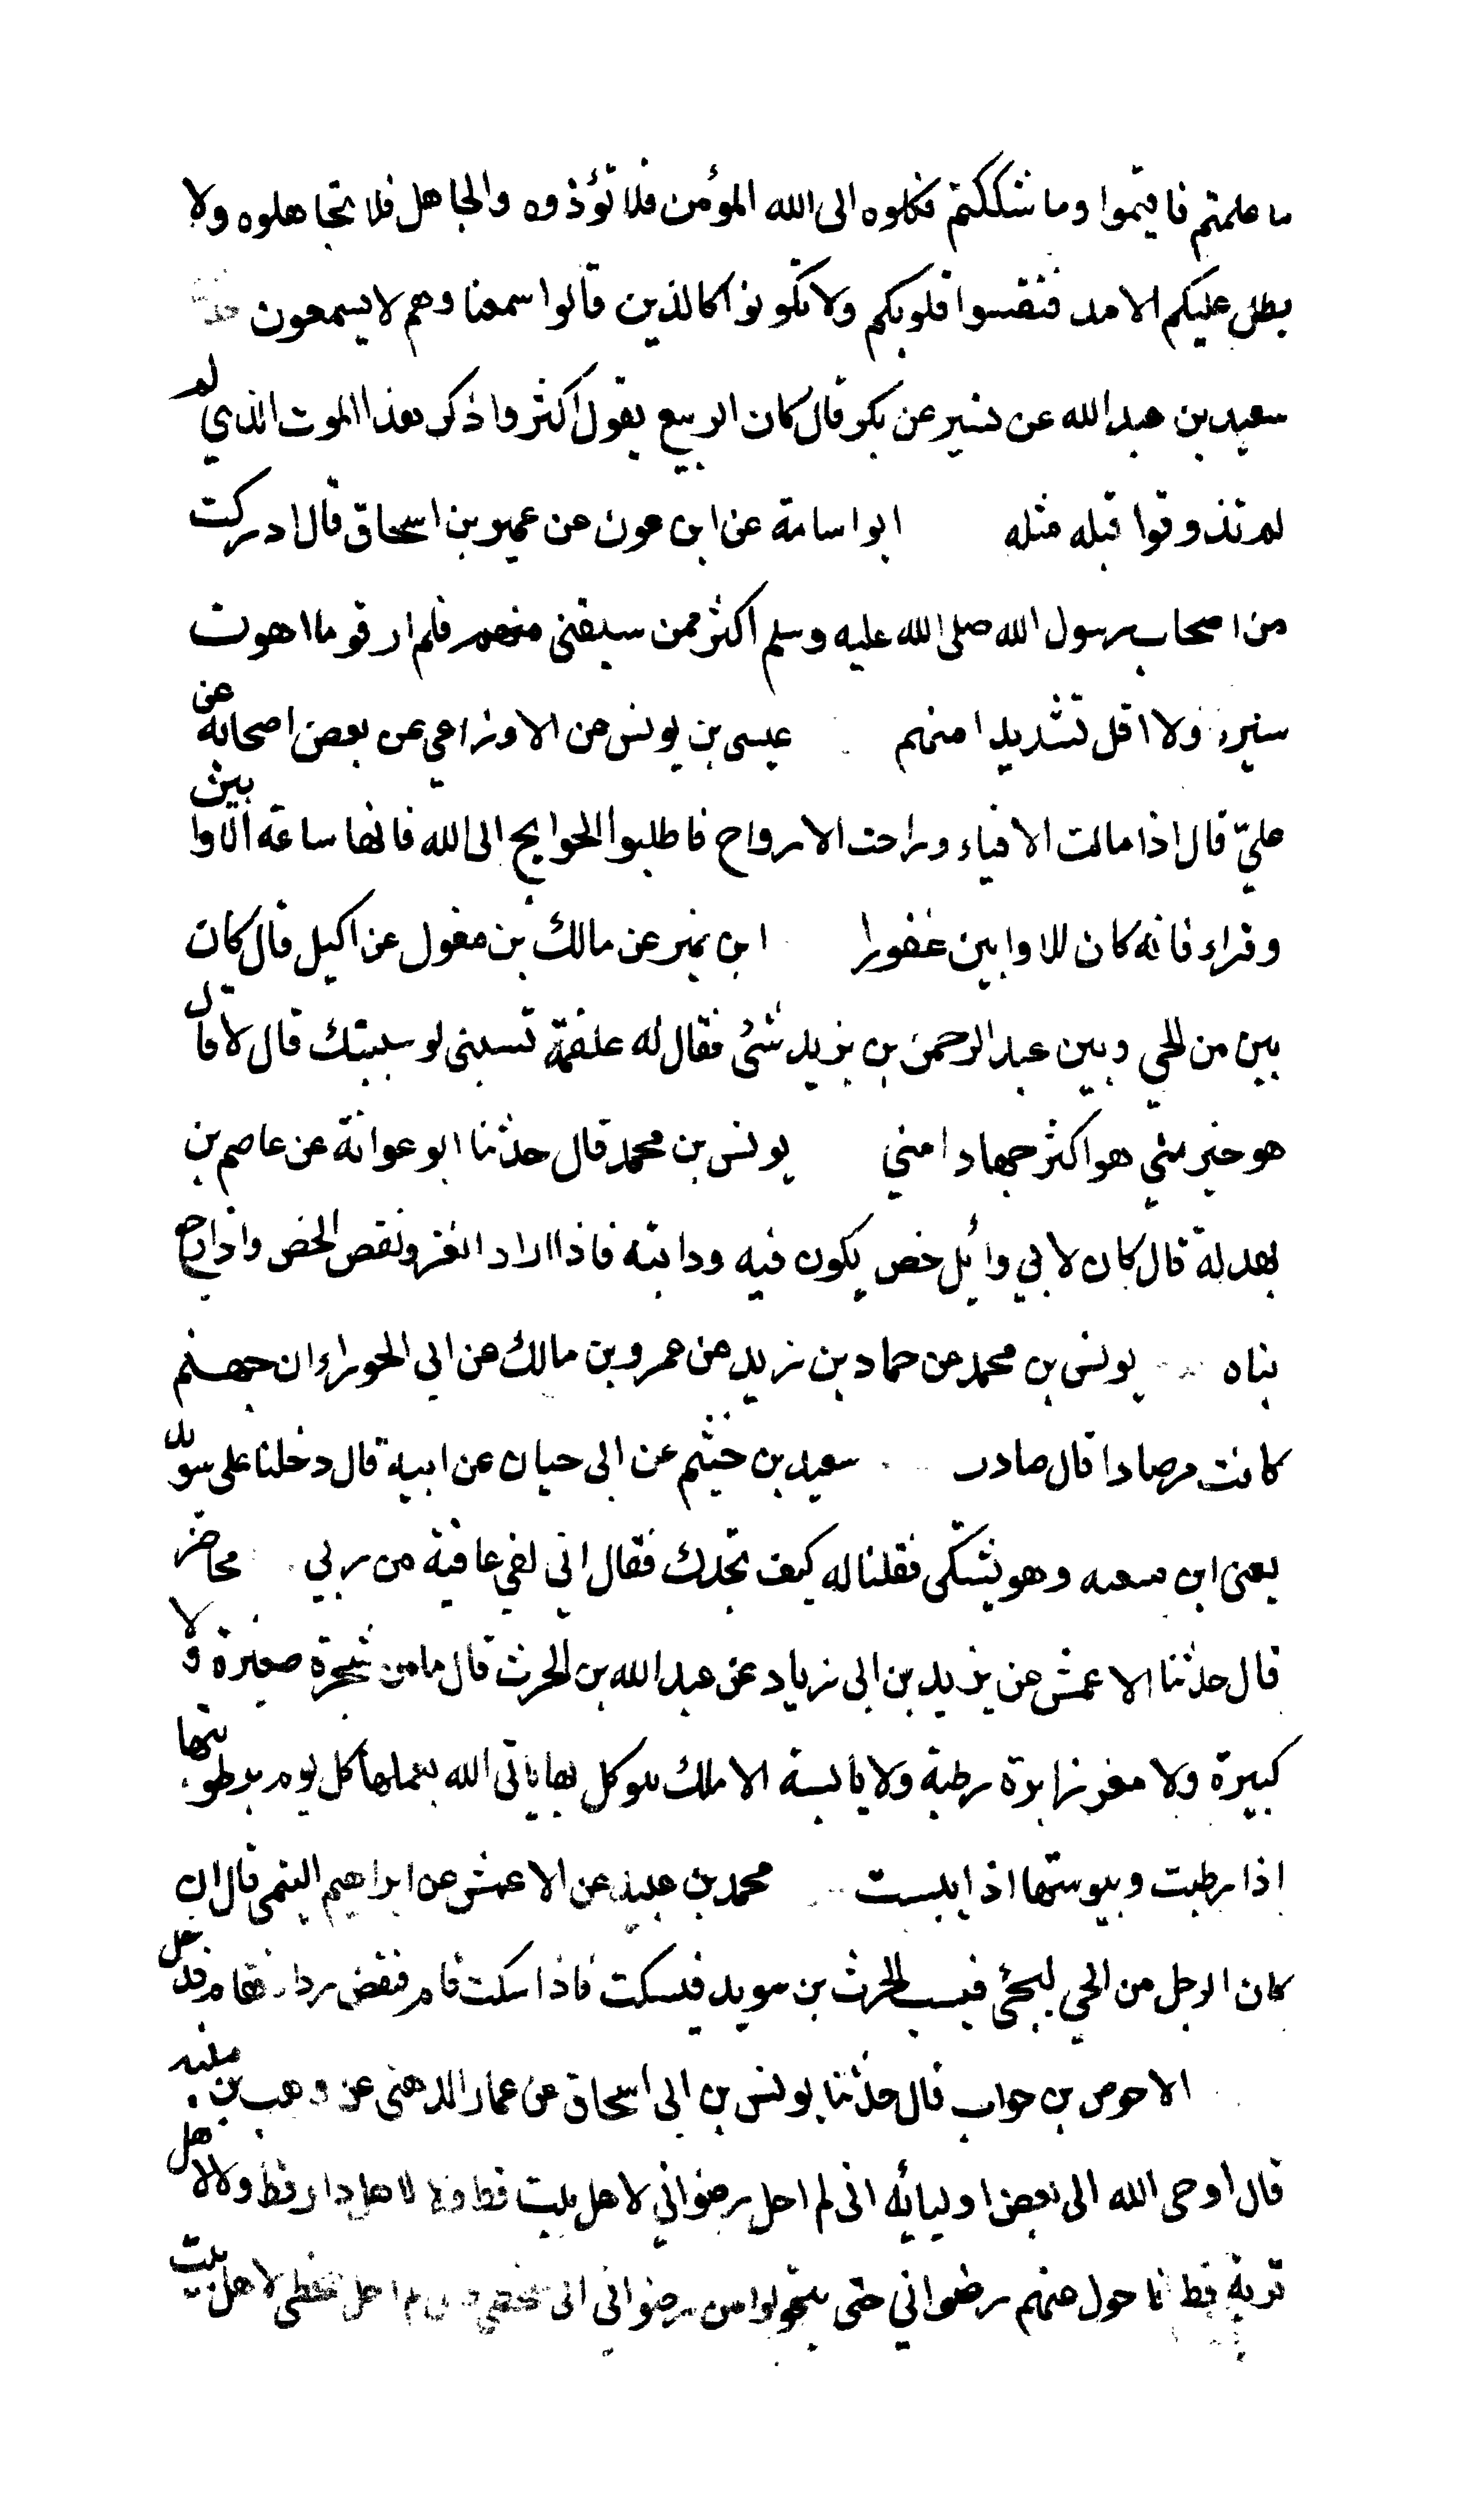 ما علمتم فاقيموا وما شككتم فكلوه الى الله المؤمن فلا تؤذوه والجاهل فلا تجاهلوه ولا
يطل عليكم الامد فتقسوا قلوبكم ولا تكونوا كالذين قالوا سمعنا وهم لا يسمعون
سعيد بن عبد الله عن نسير عن بكر قال كان الربيع يقول اكثروا ذكر هذا الموت الذي لم
لم تذوقوا قبله مثله ابو اسامة عن ابن عون عن عمير بن اسحاق قال ادركت
من اصحاب رسول الله صلى الله عليه وسلم اكثر ممن سبقنى منهم فلم ار قوما اهون
سيرة ولا اقل تشديدا منهم عيسى بن يونس عن الاوزاعي عن بعض اصحابه عن
عليّ قال اذا مالت الافياء وراحت الارواح فاطلبوا الحوايج الى الله فانها ساعة الاوابين
وقراء فانه كان للاوابين غفورا ابن نمير عن مالك بن مغول عن اكيل قال كان
بين من الحي وبين عبد الرحمن بن يزيد شئ فقال له علقمة تسبنى لو سببتك قال لا قال
هو خير مني هو اكثر جهادا مني يونس بن محمد قال حدثنا ابو عوانة عن عاصم بن
بهدلة قال كان لابي وائل خص يكون فيه ودابته فاذا اراد الغزو نقض الخص واذا رجع
بناه يونس بن محمد عن حماد بن زيد عن عمرو بن مالك عن ابي الجوزاء ان جهنم
كانت مرصادا قال صادر سعيد بن خيثم عن ابى حيان عن ابيه قال دخلنا على سويد
يعنى ابن شعبه وهو يشتكى فقلنا له كيف تجدك فقال انى لفي عافية من ربي محاضر
قال حدثنا الاعمش عن يزيد بن ابى زياد عن عبد الله بن الحرث قال ما من شجرة صغيرة ولا
كبيرة ولا مغرز ابرة رطبة ولا يابسة الا ملك موكل بها ياتى الله بعملها كل يوم برطوبتها
اذا رطبت ويبوستها اذا يبست محمد بن عبيد عن الاعمش عن ابراهيم التيمى قال ان
كان الرجل من الحي ليجئ فيسب الحرث بن سويد فيسكت فاذا سكت قام فنفض رداءه فقام فدخل
الاحوص بن جواب قال حدثنا يونس بن ابى اسحاق عن عمار الدهنى عن وهب بن منبه
قال أوحى الله الى بعض اوليائه انى لم احل رضوانى لاهل بيت قط ولا لاهل دار قط ولا لاهل
قرية قط فاحول عنهم رضوانى حتى يتحولوا من رضوانى الى سخطي وانى لم احل سخطى لاهل بيت